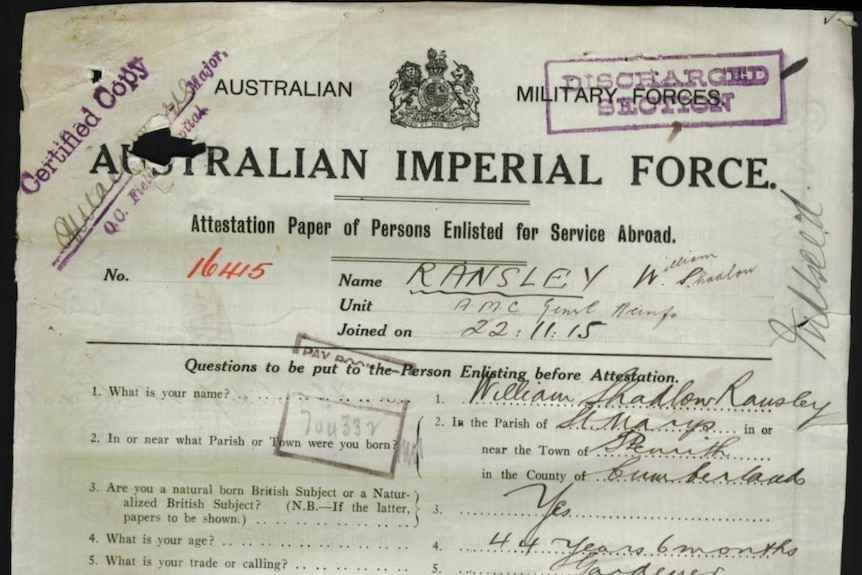 Certified Copy
Major,
Q.C. Field
AUSTRALIAN MILITARY FORCES.
DISCHARGED
SECTION
AUSTRALIAN IMPERIAL FORCE.
Attestation Paper of Persons Enlisted for Service Abroad.
No. 16415
Name RANSLEY W. William Shadlow
Unit A.M.C. Genl Reinfs
Joined on 22:11:15
PAY BOOK
Questions to be put to the Person Enlisting before Attestation.
1. What is your name? 1. William Shadlow Ransley
2. In or near what Parish or Town were you born? 2. In the Parish of St. Marys in or
near the Town of Penrith
in the County of Cumberland
3. Are you a natural born British Subject or a Natur-
alized British Subject? (N.B.—If the latter,
papers to be shown.) 3. Yes
4. What is your age? 4. 44 years 6 months
5. What is your trade or calling? 5. Gardener